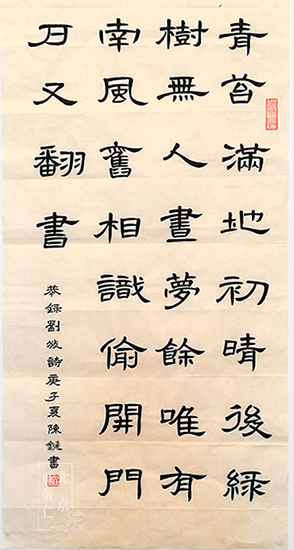 青苔滿地初晴後綠
樹無人晝夢餘唯有
南風舊相識偷開門
戶又翻書
錄劉攽詩庚子夏陳書